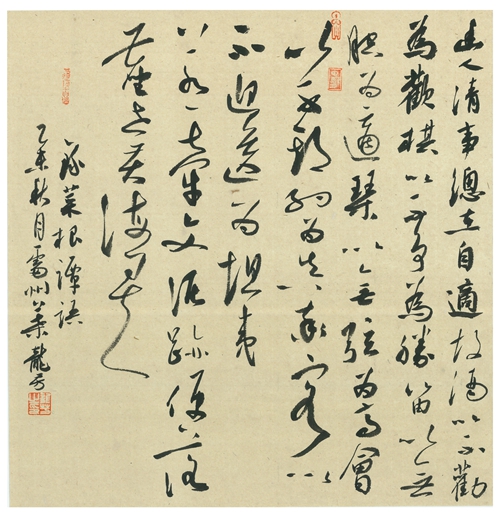 幽人清事總在自適故酒以不勸
為歡棋以不爭為勝笛以無
腔為適琴以無弦為高會
以不期約為真率客以
不迎送為坦夷
若一牽文泥跡便落
塵世苦海矣
錄菜根譚語
乙未秋月雷州葉龍